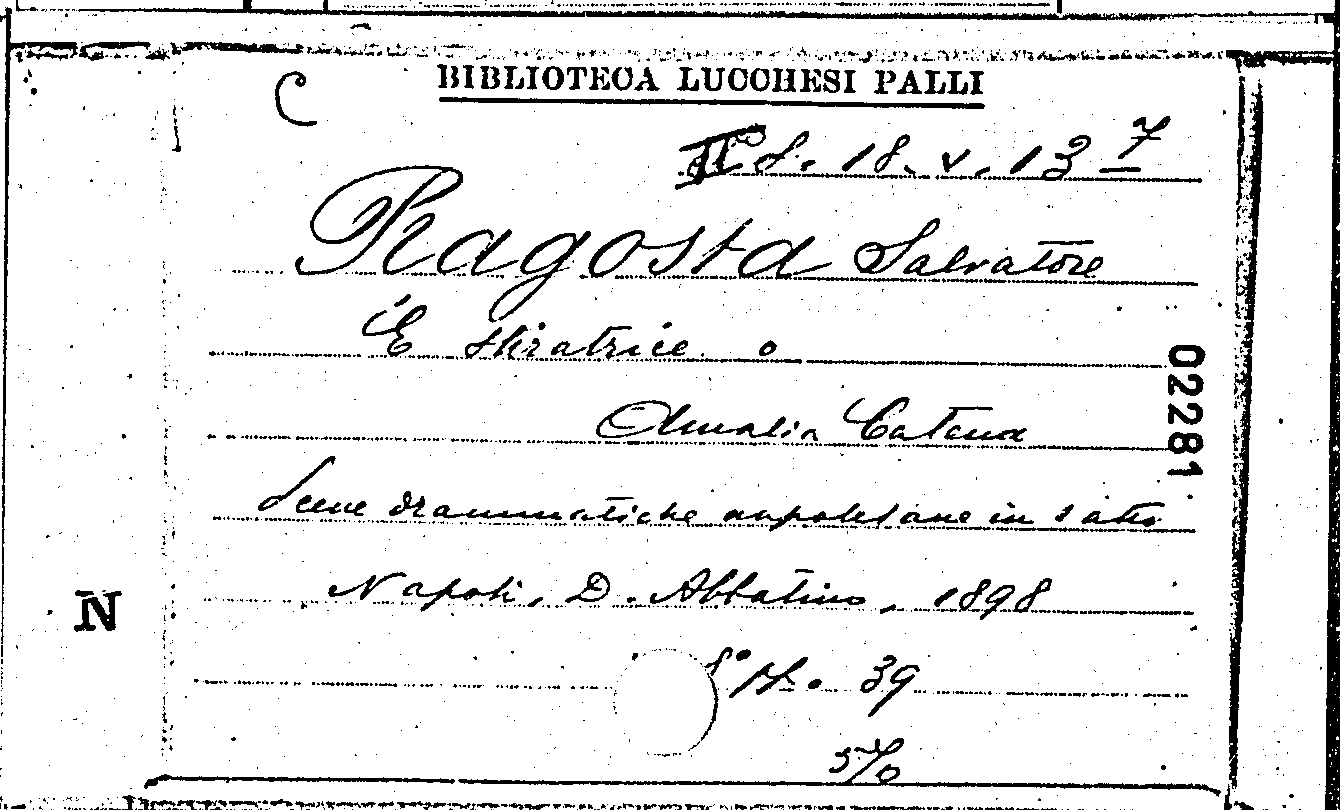 C
BIBLIOTECA LUCCHESI PALLI
8. 18. v. 13 7
Ragosta Salvatore
'E stiratrice o
Amalia Catena
Scene drammatiche napoletane in 1 atto
Napoli, D. Abbatino, 1898
8° 39
02281
N